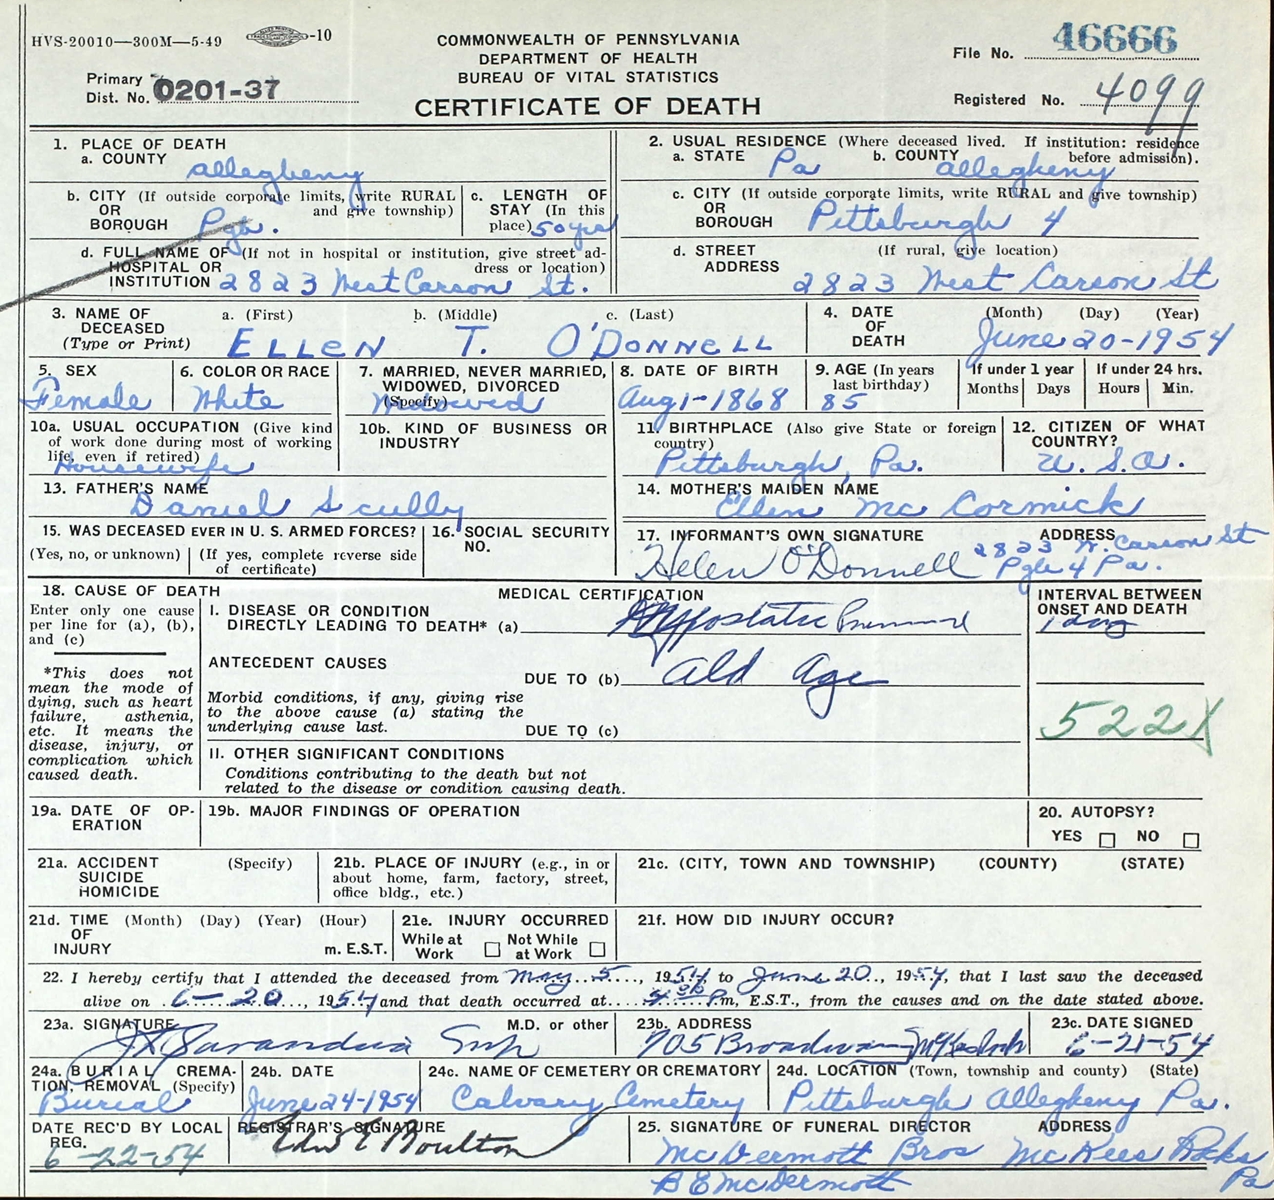 HVS-20010—300M—5-49 -10
COMMONWEALTH OF PENNSYLVANIA
DEPARTMENT OF HEALTH
BUREAU OF VITAL STATISTICS
CERTIFICATE OF DEATH
Primary
Dist. No. 0201-37
File No. 46666
Registered No. 4099
1. PLACE OF DEATH
a. COUNTY Allegheny
b. CITY (If outside corporate limits, write RURAL
OR and give township)
BOROUGH Pgh.
c. LENGTH OF
STAY (In this
place) 50 yrs
d. FULL NAME OF (If not in hospital or institution, give street ad-
HOSPITAL OR dress or location)
INSTITUTION 2823 West Carson St.
2. USUAL RESIDENCE (Where deceased lived. If institution: residence
before admission).
a. STATE Pa b. COUNTY Allegheny
c. CITY (If outside corporate limits, write RURAL and give township)
OR
BOROUGH Pittsburgh 4
d. STREET (If rural, give location)
ADDRESS 2823 West Carson St
3. NAME OF a. (First) b. (Middle) c. (Last)
DECEASED
(Type or Print) ELLEN T. O'DONNELL
4. DATE (Month) (Day) (Year)
OF
DEATH June 20-1954
5. SEX
Female
6. COLOR OR RACE
White
7. MARRIED, NEVER MARRIED,
WIDOWED, DIVORCED
(Specify) Widowed
8. DATE OF BIRTH
Aug 1-1868
9. AGE (In years
last birthday)
85
If under 1 year
Months Days
If under 24 hrs.
Hours Min.
10a. USUAL OCCUPATION (Give kind
of work done during most of working
life, even if retired)
Housewife
10b. KIND OF BUSINESS OR
INDUSTRY
11. BIRTHPLACE (Also give State or foreign
country)
Pittsburgh, Pa.
12. CITIZEN OF WHAT
COUNTRY?
U. S. A.
13. FATHER'S NAME
Daniel Scully
14. MOTHER'S MAIDEN NAME
Ellen Mc Cormick
15. WAS DECEASED EVER IN U. S. ARMED FORCES?
(Yes, no, or unknown) (If yes, complete reverse side
of certificate)
16. SOCIAL SECURITY
NO.
17. INFORMANT'S OWN SIGNATURE ADDRESS
Helen O'Donnell 2823 W. Carson St
Pgh 4 Pa.
18. CAUSE OF DEATH
Enter only one cause
per line for (a), (b),
and (c)
*This does not
mean the mode of
dying, such as heart
failure, asthenia,
etc. It means the
disease, injury, or
complication which
caused death.
MEDICAL CERTIFICATION
I. DISEASE OR CONDITION
DIRECTLY LEADING TO DEATH* (a) Hypostatic
ANTECEDENT CAUSES
DUE TO (b) Old Age
Morbid conditions, if any, giving rise
to the above cause (a) stating the
underlying cause last.
DUE TO (c)
II. OTHER SIGNIFICANT CONDITIONS
Conditions contributing to the death but not
related to the disease or condition causing death.
INTERVAL BETWEEN
ONSET AND DEATH
1 day
522X
19a. DATE OF OP-
ERATION
19b. MAJOR FINDINGS OF OPERATION
20. AUTOPSY?
YES NO
21a. ACCIDENT (Specify)
SUICIDE
HOMICIDE
21b. PLACE OF INJURY (e.g., in or
about home, farm, factory, street,
office bldg., etc.)
21c. (CITY, TOWN AND TOWNSHIP) (COUNTY) (STATE)
21d. TIME (Month) (Day) (Year) (Hour)
OF
INJURY m. E.S.T.
21e. INJURY OCCURRED
While at Not While
Work at Work
21f. HOW DID INJURY OCCUR?
22. I hereby certify that I attended the deceased from May 5, 1954 to June 20, 1954, that I last saw the deceased
alive on 6-20, 1954 and that death occurred at P.m, E.S.T., from the causes and on the date stated above.
23a. SIGNATURE M.D. or other
23b. ADDRESS
705 Broadway
23c. DATE SIGNED
6-21-54
24a. BURIAL, CREMA-
TION, REMOVAL (Specify)
Burial
24b. DATE
June 24-1954
24c. NAME OF CEMETERY OR CREMATORY
Calvary Cemetery
24d. LOCATION (Town, township and county) (State)
Pittsburgh Allegheny Pa.
DATE REC'D BY LOCAL
REG.
6-22-54
REGISTRAR'S SIGNATURE
Edw E Boulton
25. SIGNATURE OF FUNERAL DIRECTOR ADDRESS
McDermott Bros McKees Rocks
Pa
B E McDermott